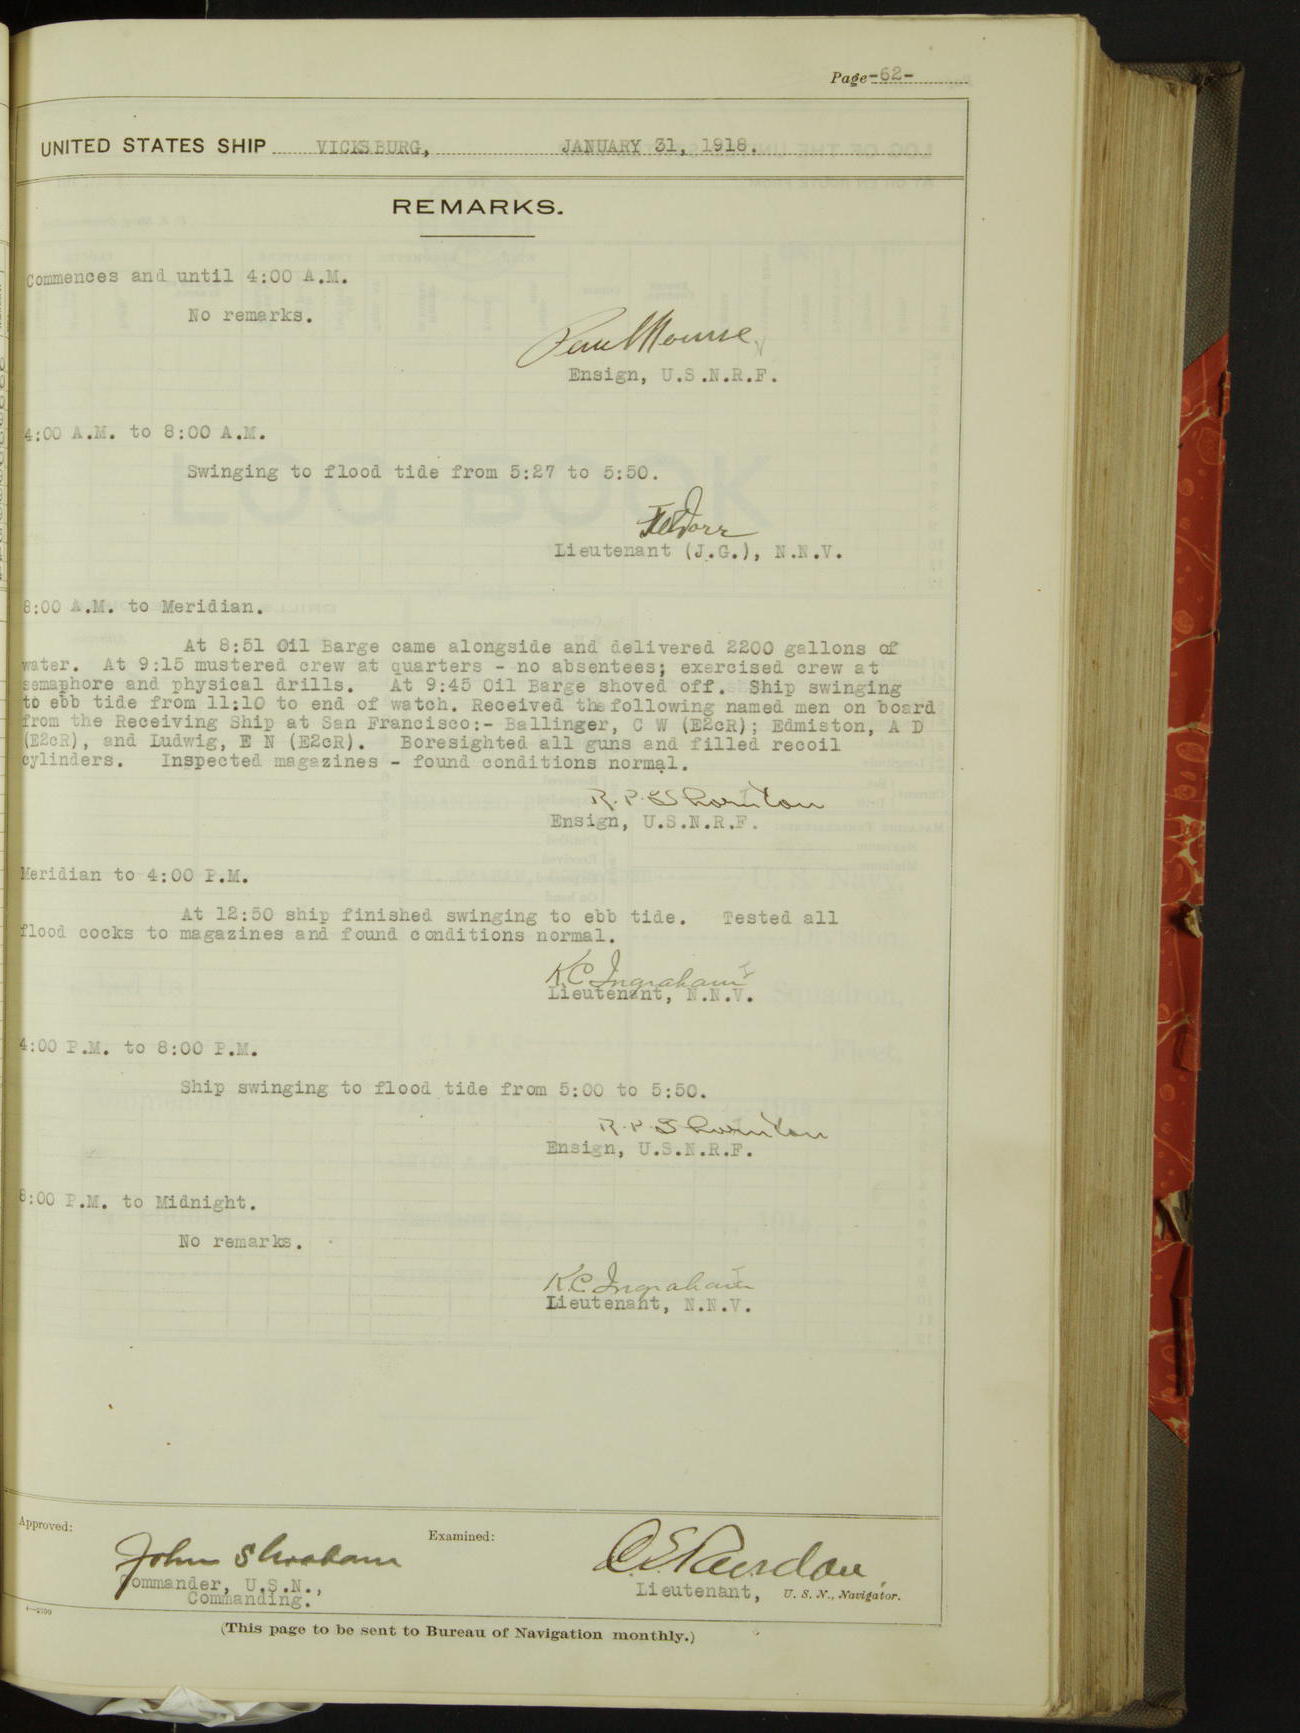 Page -62-
UNITED STATES SHIP VICKSBURG, JANUARY 31, 1918.
REMARKS.
Commences and until 4:00 A.M.
No remarks.
Ensign, U.S.N.R.F.
4:00 A.M. to 8:00 A.M.
Swinging to flood tide from 5:27 to 5:50.
Lieutenant (J.G.), N.N.V.
8:00 A.M. to Meridian.
At 8:51 Oil Barge came alongside and delivered 2200 gallons of
water. At 9:15 mustered crew at quarters - no absentees; exercised crew at
semaphore and physical drills. At 9:45 Oil Barge shoved off. Ship swinging
to ebb tide from 11:10 to end of watch. Received the following named men on board
from the Receiving Ship at San Francisco:- Ballinger, C W (E2cR); Edmiston, A D
(E2cR), and Ludwig, E N (E2cR). Boresighted all guns and filled recoil
cylinders. Inspected magazines - found conditions normal.
R. P. Thornton
Ensign, U.S.N.R.F.
Meridian to 4:00 P.M.
At 12:50 ship finished swinging to ebb tide. Tested all
flood cocks to magazines and found conditions normal.
K.C. Ingraham
Lieutenant, N.N.V.
4:00 P.M. to 8:00 P.M.
Ship swinging to flood tide from 5:00 to 5:50.
R. P. Thornton
Ensign, U.S.N.R.F.
8:00 P.M. to Midnight.
No remarks.
K.C. Ingraham
Lieutenant, N.N.V.
Approved:
Examined:
John S Graham
Commander, U.S.N.,
Commanding.
Lieutenant, U. S. N., Navigator.
(This page to be sent to Bureau of Navigation monthly.)